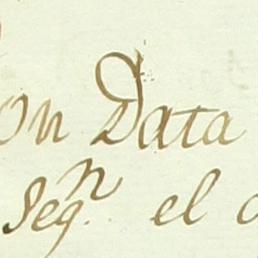 on Data
Segn. el